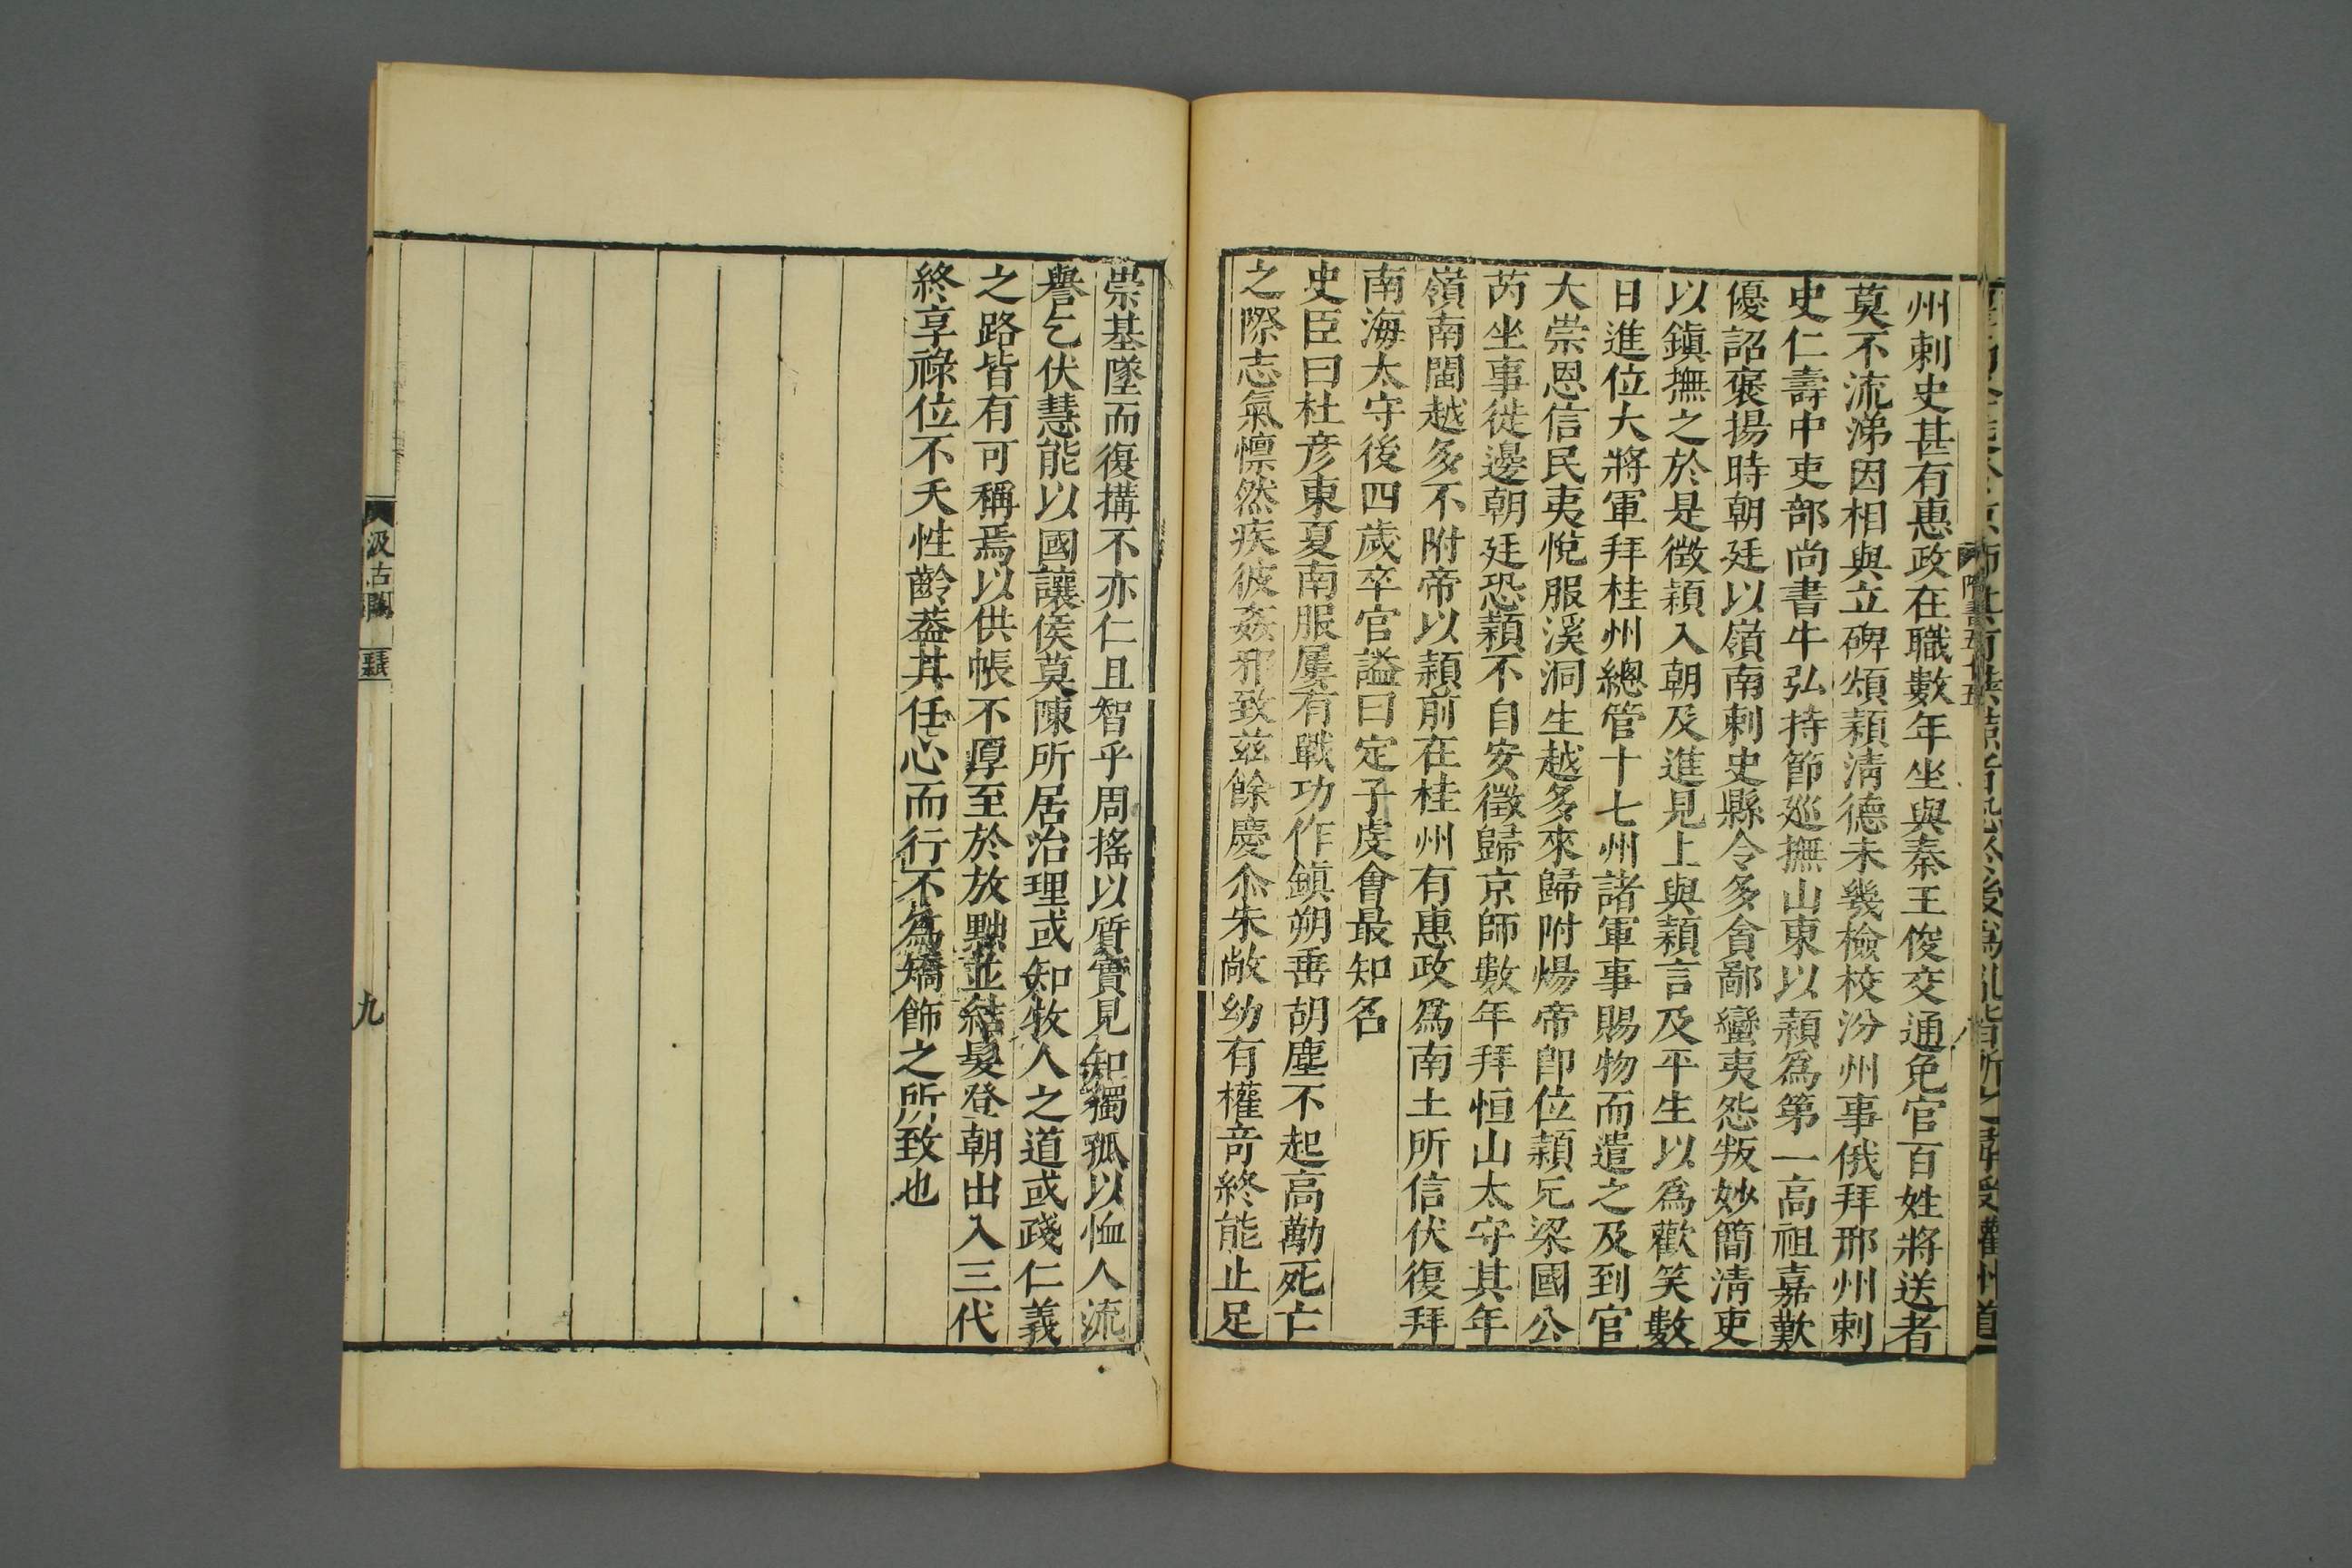 州刺史甚有惠政在職數年坐與秦王俊交通免官百姓將送者
莫不流涕因相與立碑頌穎淸德未幾檢校汾州事俄拜邢州刺
史仁壽中吏部尚書牛弘持節巡撫山東以穎爲第一高祖嘉歎
優詔褒揚時朝廷以嶺南刺史縣令多貪鄙蠻夷怨叛妙簡淸吏
以鎭撫之於是徵穎入朝及進見上與穎言及平生以爲歡笑數
日進位大將軍拜桂州總管十七州諸軍事賜物而遣之及到官
大崇恩信民夷悅服溪洞生越多來歸附煬帝卽位穎兄梁國公
芮坐事徙邊朝廷恐穎不自安徵歸京師數年拜恒山太守其年
嶺南閩越多不附帝以穎前在桂州有惠政爲南土所信伏復拜
南海太守後四歲卒官謚曰定子虔會最知名
史臣曰杜彥東夏南服屢有戰功作鎭朔垂胡塵不起高勱死亡
之際志氣懍然疾彼姦邪致茲餘慶尒朱敞幼有權奇終能止足
崇基墜而復搆不亦仁且智乎周搖以質實見知獨孤以恤人流
譽乞伏慧能以國讓侯莫陳所居治理或知牧人之道或踐仁義
之路皆有可稱焉以供帳不厚至於放黜並結髮登朝出入三代
終享祿位不夭性齡葢其任心而行不爲矯飾之所致也
汲古閣
九